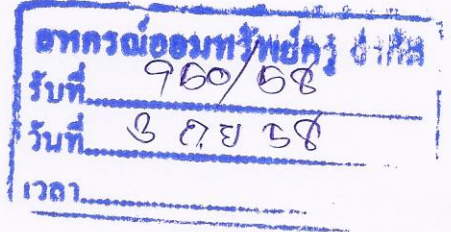 สหกรณ์ออมทรัพย์ครู จำกัด
รับที่ 960/58
วันที่ 3 ก.ย 58
เวลา